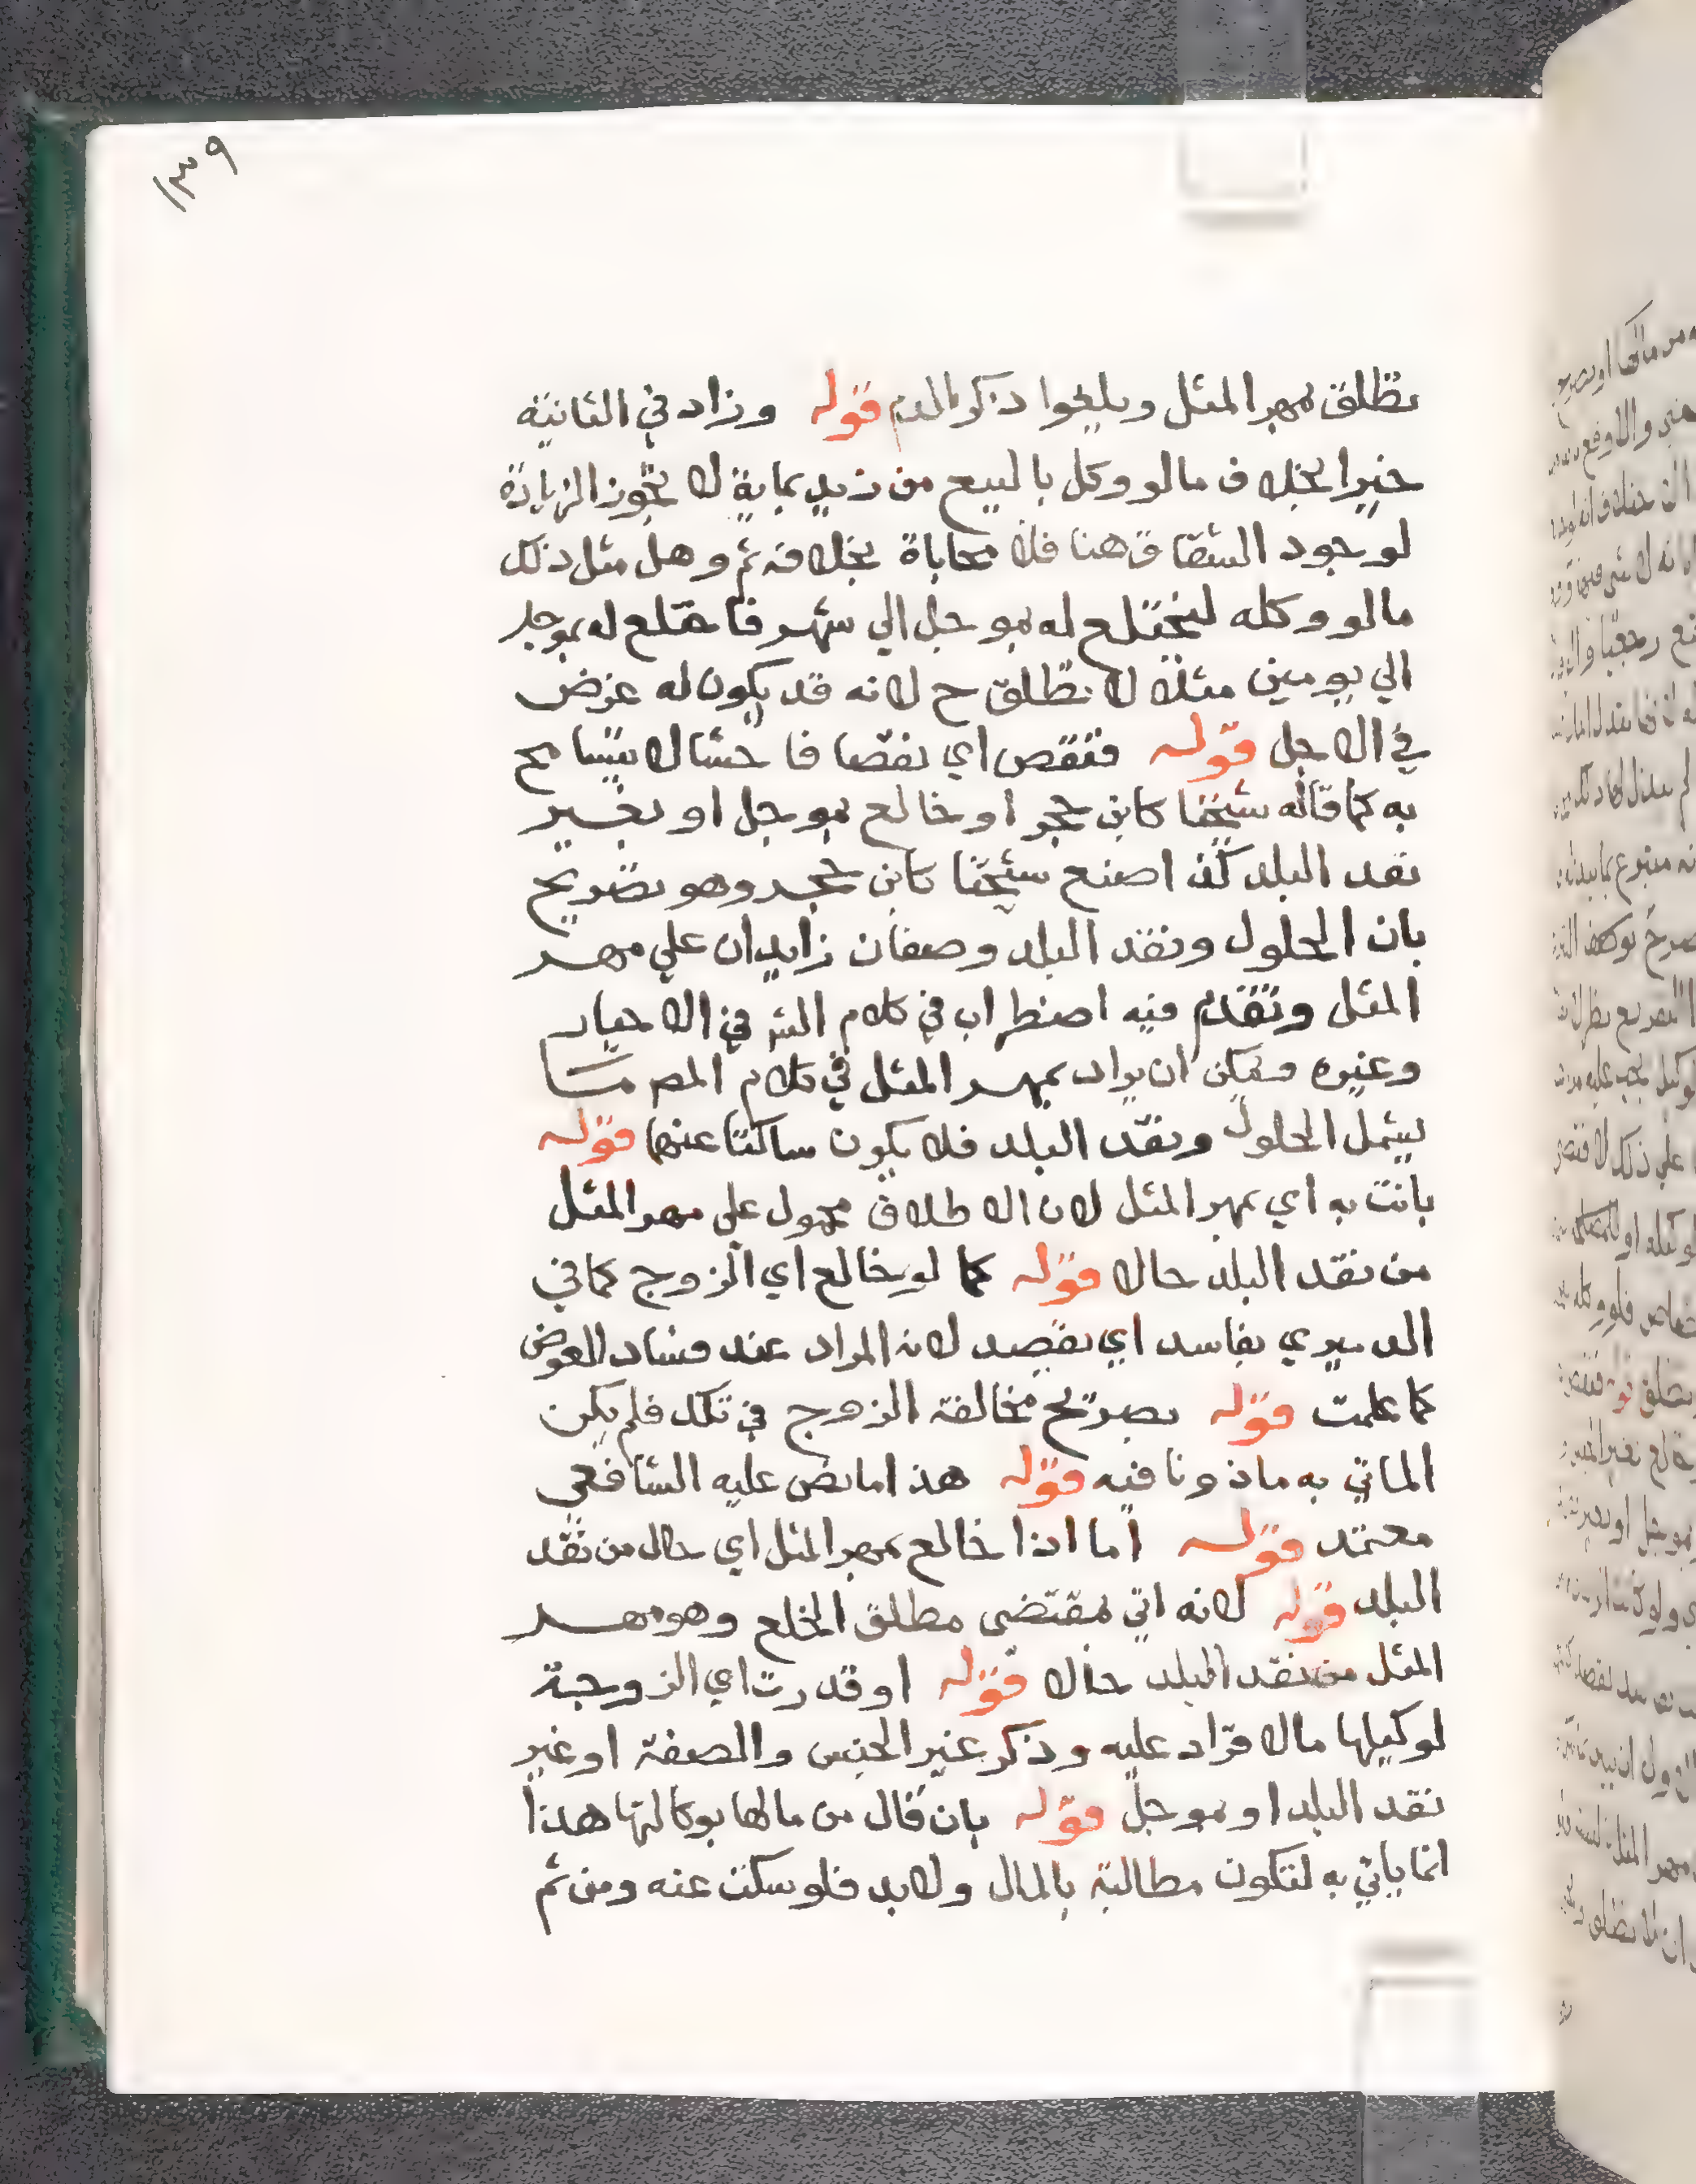 ١٣٩
تطلق بمهر المثل ويلغوا ذكر الدم قوله وزاد في الثانية
خيرا بخلاف مالو وكل بالبيع من زيد بماية لا تجوز الزيادة
لوجود الشقاق هنا فلا محاباة بخلافه ثم وهل مثل ذلك
مالو وكله ليختلع له بموجل الي شهر فاختلع له بموجل
الي يومين مثلا لا تطلق ح لانه قد يكون له غرض
في الاجل قوله فنقص اي نقصا فاحشا لا يتسامح
به كما قاله شيخنا كابن حجر او خالع بموجل او بغير
نقد البلد كذا صنع شيخنا كابن حجر وهو تصريح
بان الحلول ونقد البلد وصفان زايدان علي مهر
المثل وتقدم فيه اضطراب في كلام الشر في الاحبار
وغيره ويمكن ان يراد بمهر المثل في كلام المصر مسا
ليشمل الحلول ونقد البلد فلا يكون ساكتا عنهما قوله
بانت به اي بمهر المثل لان الاطلاق محمول علي مهر المثل
من نقد البلد حالا قوله كما لو خالع اي الزوج كما في
الدميري بفاسد اي بقصد لانه المراد عند فساد العوض
كما علمت قوله بصريح مخالفة الزوج في تلك فلم يكن
الماتي به ماذونا فيه قوله هذا ما نص عليه الشافعي
معتمد قوله اما اذا خالع بمهر المثل اي حال من نقد
البلد قوله لانه اتي بمقتضى مطلق الخلع وهو مهر
المثل من نقد البلد حالا قوله او قدرت اي الزوجة
لوكيلها مالا فزاد عليه وذكر غير الجنس والصفة او غير
نقد البلد او موجل قوله بان قال من مالها بوكالتها هذا
انما ياتي به لتكون مطالبة بالمال ولابد فلو سكت عنه ومن ثم